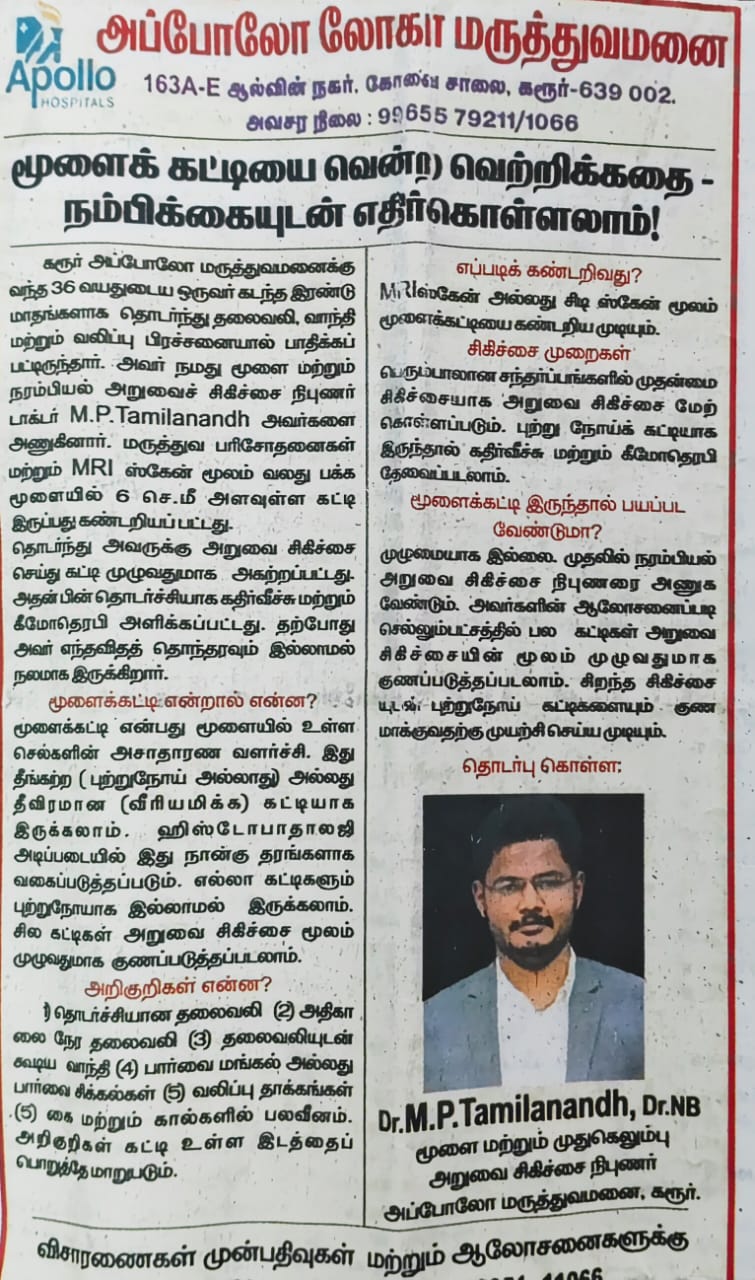 அப்போலோ லோகா மருத்துவமனை
Apollo
HOSPITALS
163A-E ஆல்வின் நகர், கோவை சாலை, கரூர்-639 002.
அவசர நிலை : 99655 79211/1066
மூளைக் கட்டியை வென்ற வெற்றிக்கதை -
நம்பிக்கையுடன் எதிர்கொள்ளலாம்!
கரூர் அப்போலோ மருத்துவமனைக்கு
வந்த 36 வயதுடைய ஒருவர் கடந்த இரண்டு
மாதங்களாக தொடர்ந்து தலைவலி, வாந்தி
மற்றும் வலிப்பு பிரச்சனையால் பாதிக்கப்
பட்டிருந்தார். அவர் நமது மூளை மற்றும்
நரம்பியல் அறுவைச் சிகிச்சை நிபுணர்
டாக்டர் M.P.Tamilanandh அவர்களை
அணுகினார். மருத்துவ பரிசோதனைகள்
மற்றும் MRI ஸ்கேன் மூலம் வலது பக்க
மூளையில் 6 செ.மீ அளவுள்ள கட்டி
இருப்பது கண்டறியப் பட்டது.
தொடர்ந்து அவருக்கு அறுவை சிகிச்சை
செய்து கட்டி முழுவதுமாக அகற்றப்பட்டது.
அதன் பின் தொடர்ச்சியாக கதிர்வீச்சு மற்றும்
கீமோதெரபி அளிக்கப்பட்டது. தற்போது
அவர் எந்தவிதத் தொந்தரவும் இல்லாமல்
நலமாக இருக்கிறார்.
மூளைக்கட்டி என்றால் என்ன?
மூளைக்கட்டி என்பது மூளையில் உள்ள
செல்களின் அசாதாரண வளர்ச்சி. இது
தீங்கற்ற ( புற்றுநோய் அல்லாது) அல்லது
தீவிரமான (வீரியமிக்க) கட்டியாக
இருக்கலாம். ஹிஸ்டோபாதாலஜி
அடிப்படையில் இது நான்கு தரங்களாக
வகைப்படுத்தப்படும். எல்லா கட்டிகளும்
புற்றுநோயாக இல்லாமல் இருக்கலாம்.
சில கட்டிகள் அறுவை சிகிச்சை மூலம்
முழுவதுமாக குணப்படுத்தப்படலாம்.
அறிகுறிகள் என்ன?
1) தொடர்ச்சியான தலைவலி (2) அதிகா
லை நேர தலைவலி (3) தலைவலியுடன்
கூடிய வாந்தி (4) பார்வை மங்கல் அல்லது
பார்வை சிக்கல்கள் (5) வலிப்பு தாக்கங்கள்
(5) கை மற்றும் கால்களில் பலவீனம்.
அறிகுறிகள் கட்டி உள்ள இடத்தைப்
பொறுத்தே மாறுபடும்.
எப்படிக் கண்டறிவது?
MRIஸ்கேன் அல்லது சிடி ஸ்கேன் மூலம்
மூளைக்கட்டியை கண்டறிய முடியும்.
சிகிச்சை முறைகள்
பெரும்பாலான சந்தர்ப்பங்களில் முதன்மை
சிகிச்சையாக அறுவை சிகிச்சை மேற்
கொள்ளப்படும். புற்று நோய்க் கட்டியாக
இருந்தால் கதிர்வீச்சு மற்றும் கீமோதெரபி
தேவைப்படலாம்.
மூளைக்கட்டி இருந்தால் பயப்பட
வேண்டுமா?
முழுமையாக இல்லை. முதலில் நரம்பியல்
அறுவை சிகிச்சை நிபுணரை அணுக
வேண்டும். அவர்களின் ஆலோசனைப்படி
செல்லும்பட்சத்தில் பல கட்டிகள் அறுவை
சிகிச்சையின் மூலம் முழுவதுமாக
குணப்படுத்தப்படலாம். சிறந்த சிகிச்சை
யுடன் புற்றுநோய் கட்டிகளையும் குண
மாக்குவதற்கு முயற்சி செய்ய முடியும்.
தொடர்பு கொள்ள:
Dr.M.P.Tamilanandh, Dr.NB
மூளை மற்றும் முதுகெலும்பு
அறுவை சிகிச்சை நிபுணர்
அப்போலோ மருத்துவமனை, கரூர்.
விசாரணைகள் முன்பதிவுகள் மற்றும் ஆலோசனைகளுக்கு